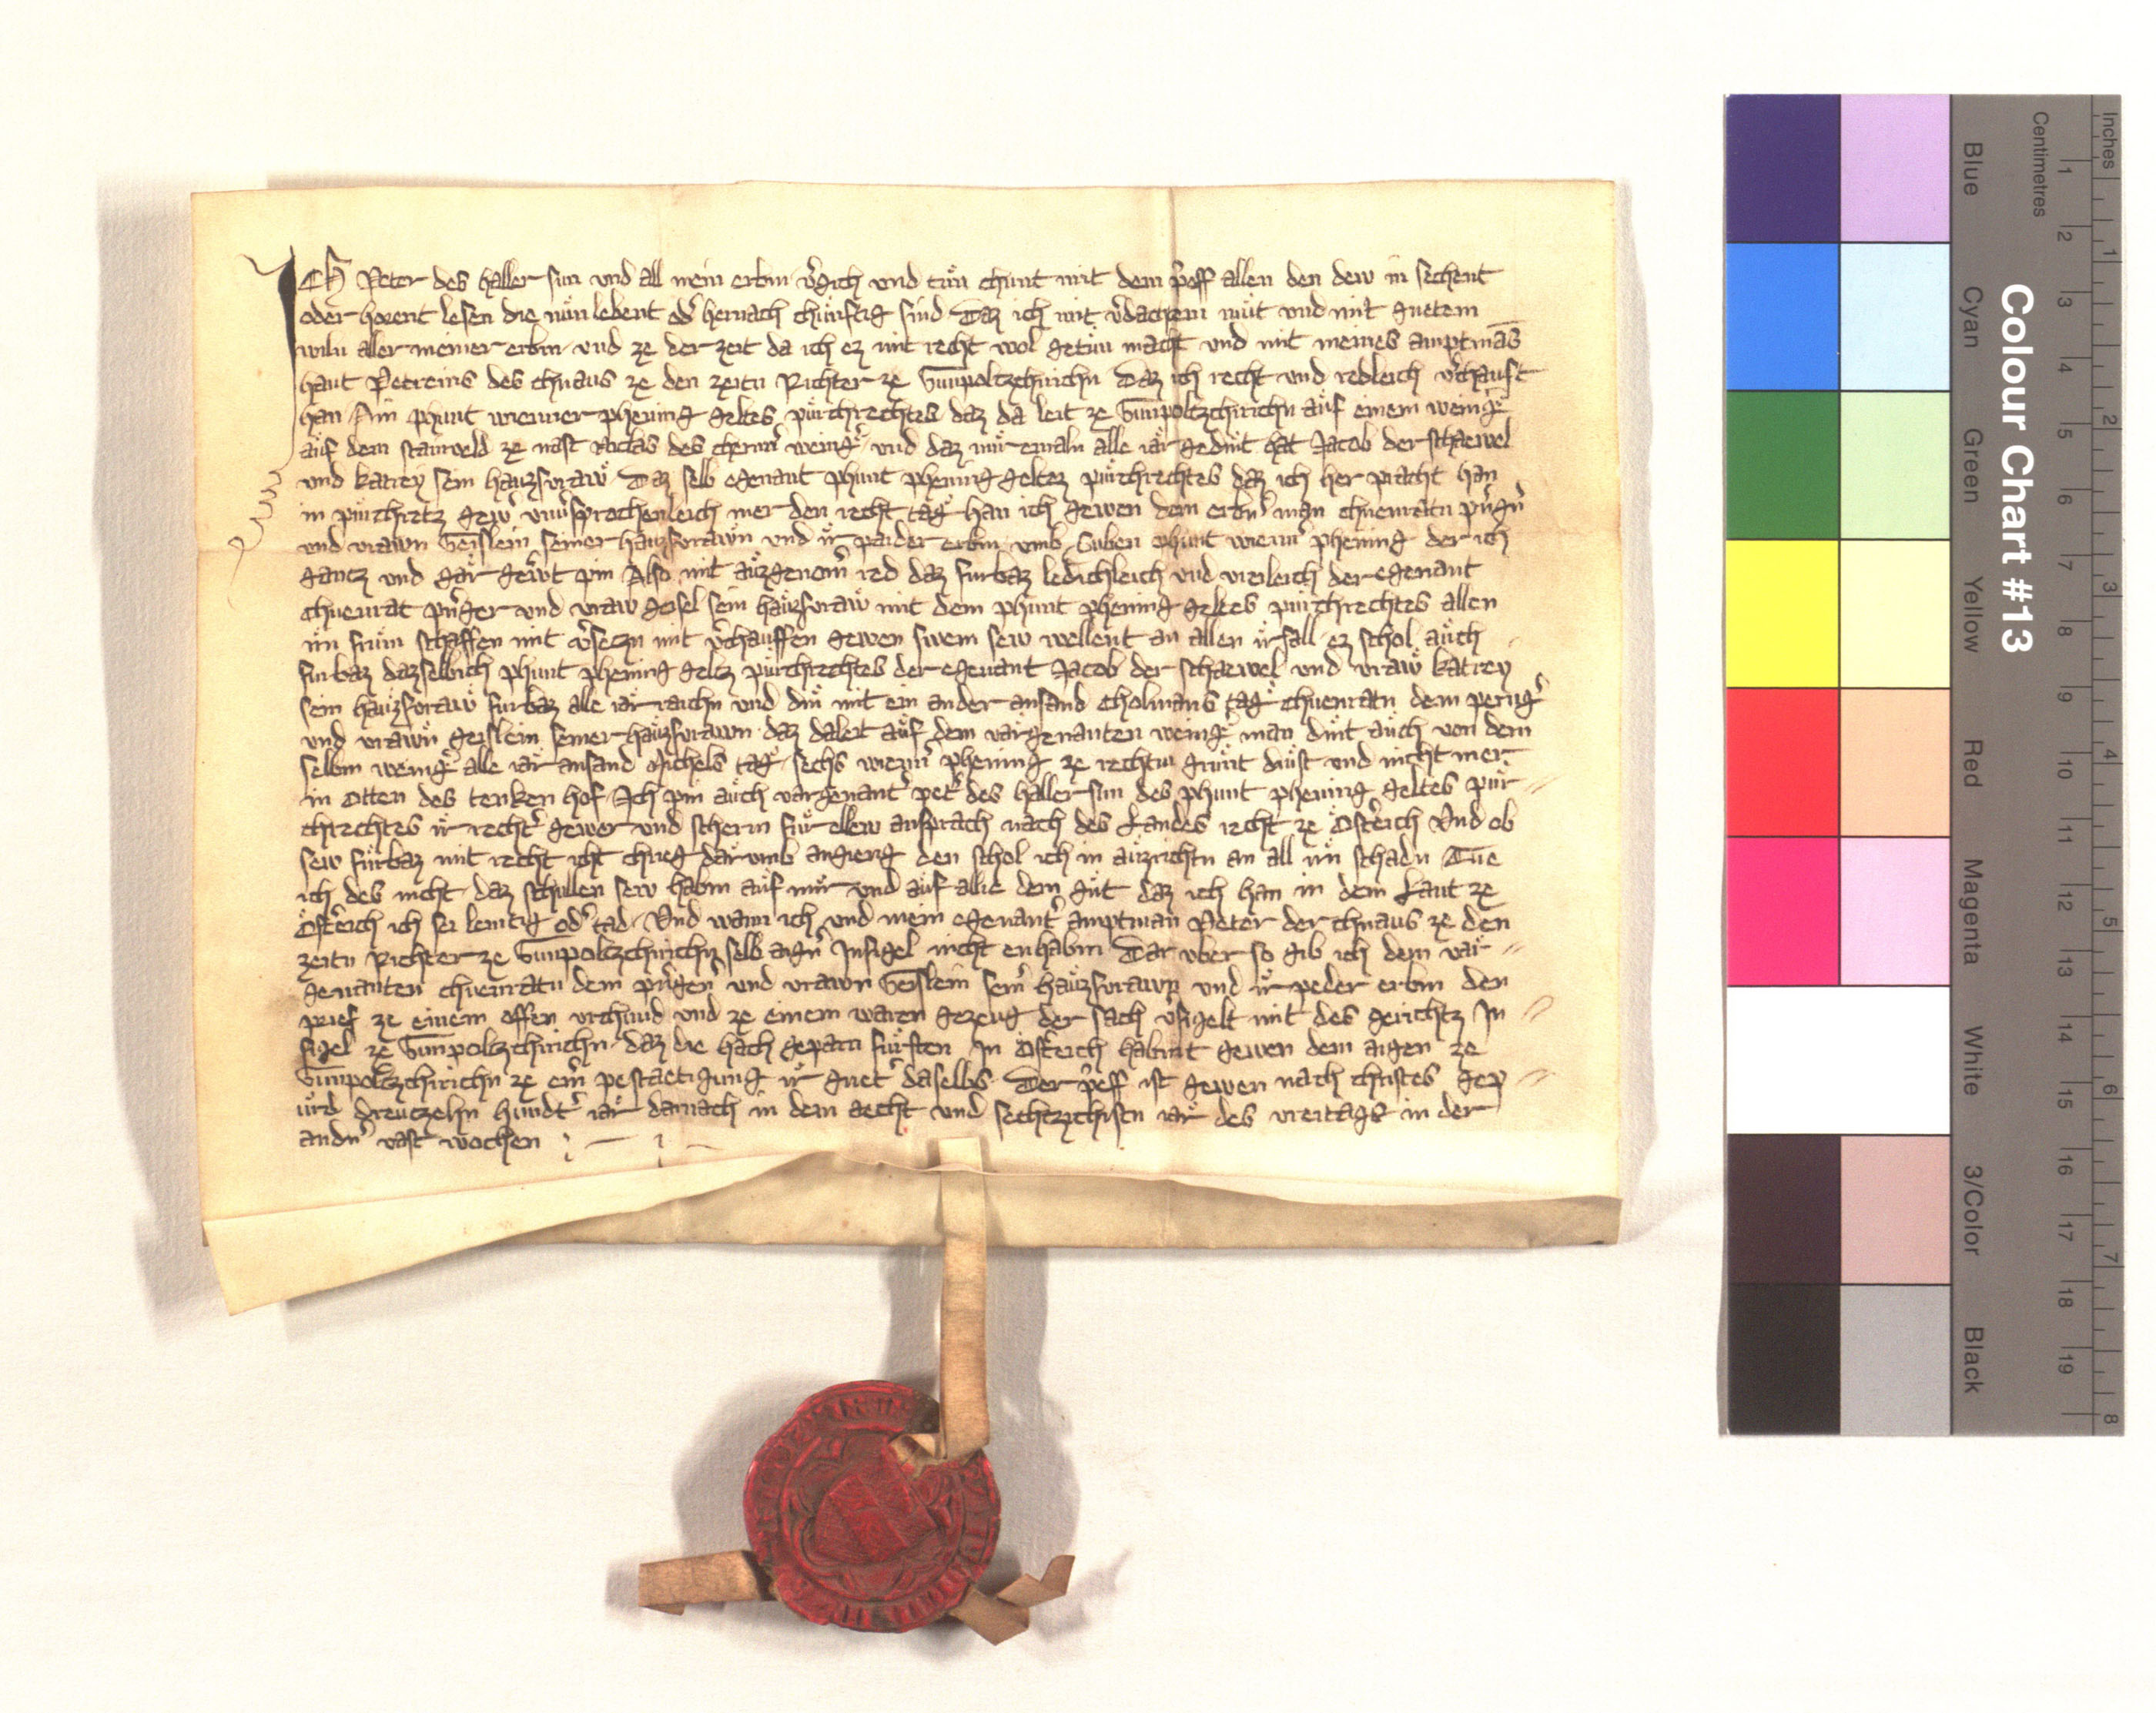 ICH Peter des Haller sun vnd all mein erbm vͦgich vnd tuͤn chunt mit dem pͦeff allen den dew in sechent
oder horent lesen die nuͤn lebent odͦ hernach chuͤnftig sind Daz ich mit vͦdachtem muͤt vnd mit guetem
willn aller meiner erbm vnd ze der zeit da ich ez mit recht wol getuͤn macht vnd mit meines amptmās
hant Petreins des chnaus ze den zeitn Richter ze Gumpoltzchirichn Daz ich recht vnd redleich vͦchauft
han Ain phunt wienner phening geltes puͤrchrechtes daz da leit ze Gumpoltzchirichn auͤf einem weingͦ
auͤf dem stainveld ze nast Niclas des weingͦ vnd daz mir emaln alle iaͤr gedint hat Jacob der schaewel
vnd katrey sein hauͤzfvrawͤ Daz selb egenant phunt phening geltez puͤrchrechtes daz ich her pracht han
in puͤrchrechtz gewͦ vnuͦsprochenleich mer den recht tag han ich gewen dem erbnͦ man chuenratn
vnd vrawn Geislein seiner hauͤzfvrawͤn vnd iͤr paider erbm vmb Siben phunt wiennͦ phening der ich
gantz vnd gaͤr gewͦt pin Also mit auͤzgenomͦ red daz furbaz ledichleich vnd vreileich der egenant
chuenrat pͦger vnd vraw geisel sein hauͤzfvrawͤ mit dem phunt phening geltes puͤrchrechtes allen
irn frum schaffen mit vͦseczn mit vͦchauffen gewen swem sew wellent an allen irsall ez schol auͤch
furbaz dazselbich phunt phening geltz puͤrchrechtes der egenant Jacob der schaewel vnd vrawͤ katrey
sein hauͤzfvrawͤ furbaz alle iaͤr raichn vnd din mit ein ander an sand Cholmans tag chuenratn dem pergͦ
vnd vrawͤn geislein seiner hauͤzfvrawn daz daleit auͤf dem vaͤrgenanten weingͦ man dint auͤch von dem
selbm weingͦ alle iaͤr an sand Michels tag sechs wiennͦ phening ze rechtm gruͤnt dinst vnd nicht mer
in Otten des tenken hof Ich pin auͤch vargenantͦ petͦ des haller sun des phunt phening geltes puͤr
chrechtes iͤr rechtͦ gewer vnd scherm fuͤr ellew ansprach nach des Landes recht ze Ostͦreich Vnd ob
sew fuͤrbaz mit recht icht chrieg daͤrvmb angieng den schol ich in auͤzrichtn an all irn schadn Tue
ich des nicht daz schullen sew habm auͤf miͤr vnd auͤf alle dem guͤt daz ich han in dem Lant ze
Ostͦreich ich sei lemtig odͦ tad Vnd wann ich vnd mein egenantͦ amptman Peter der chnaus ze den
zeitn Richter ze Gumpoltzchirichn selb aignͦ Insigel nicht enhabm Dar vber so gib ich dem vaͤr
genanten chuenratn dem pͦgen vnd vrawn Geislein seinͦ hauͤzfvrawn vnd iͤr peder erbm den
prief ze einem offen vrchund vnd ze einem waren gezeug der sach vͦsigelt mit des gerichtz In
sigel ze Gumpoltzchirichn daz die hach geparn fuͤrsten In Ostͦreich habmt gewen dem aigen ze
Gumpoltzchirichn ze einͦ pestaetigung iͤr guetͦ daselbs Der pͦeff ist gewen nach christes gep
uͤrd dreutzehn hundtͦ iaͤr darnach in dem aecht vnd sechtzichistn iaͤr des vreitags in der
andnͦ vast wochen

Colour Chart #13
Blue Cyan Green Yellow Red Magenta White 3/Color Black
Centimetres 1 2 3 4 5 6 7 8 9 10 11 12 13 14 15 16 17 18 19
Inches 1 2 3 4 5 6 7 8